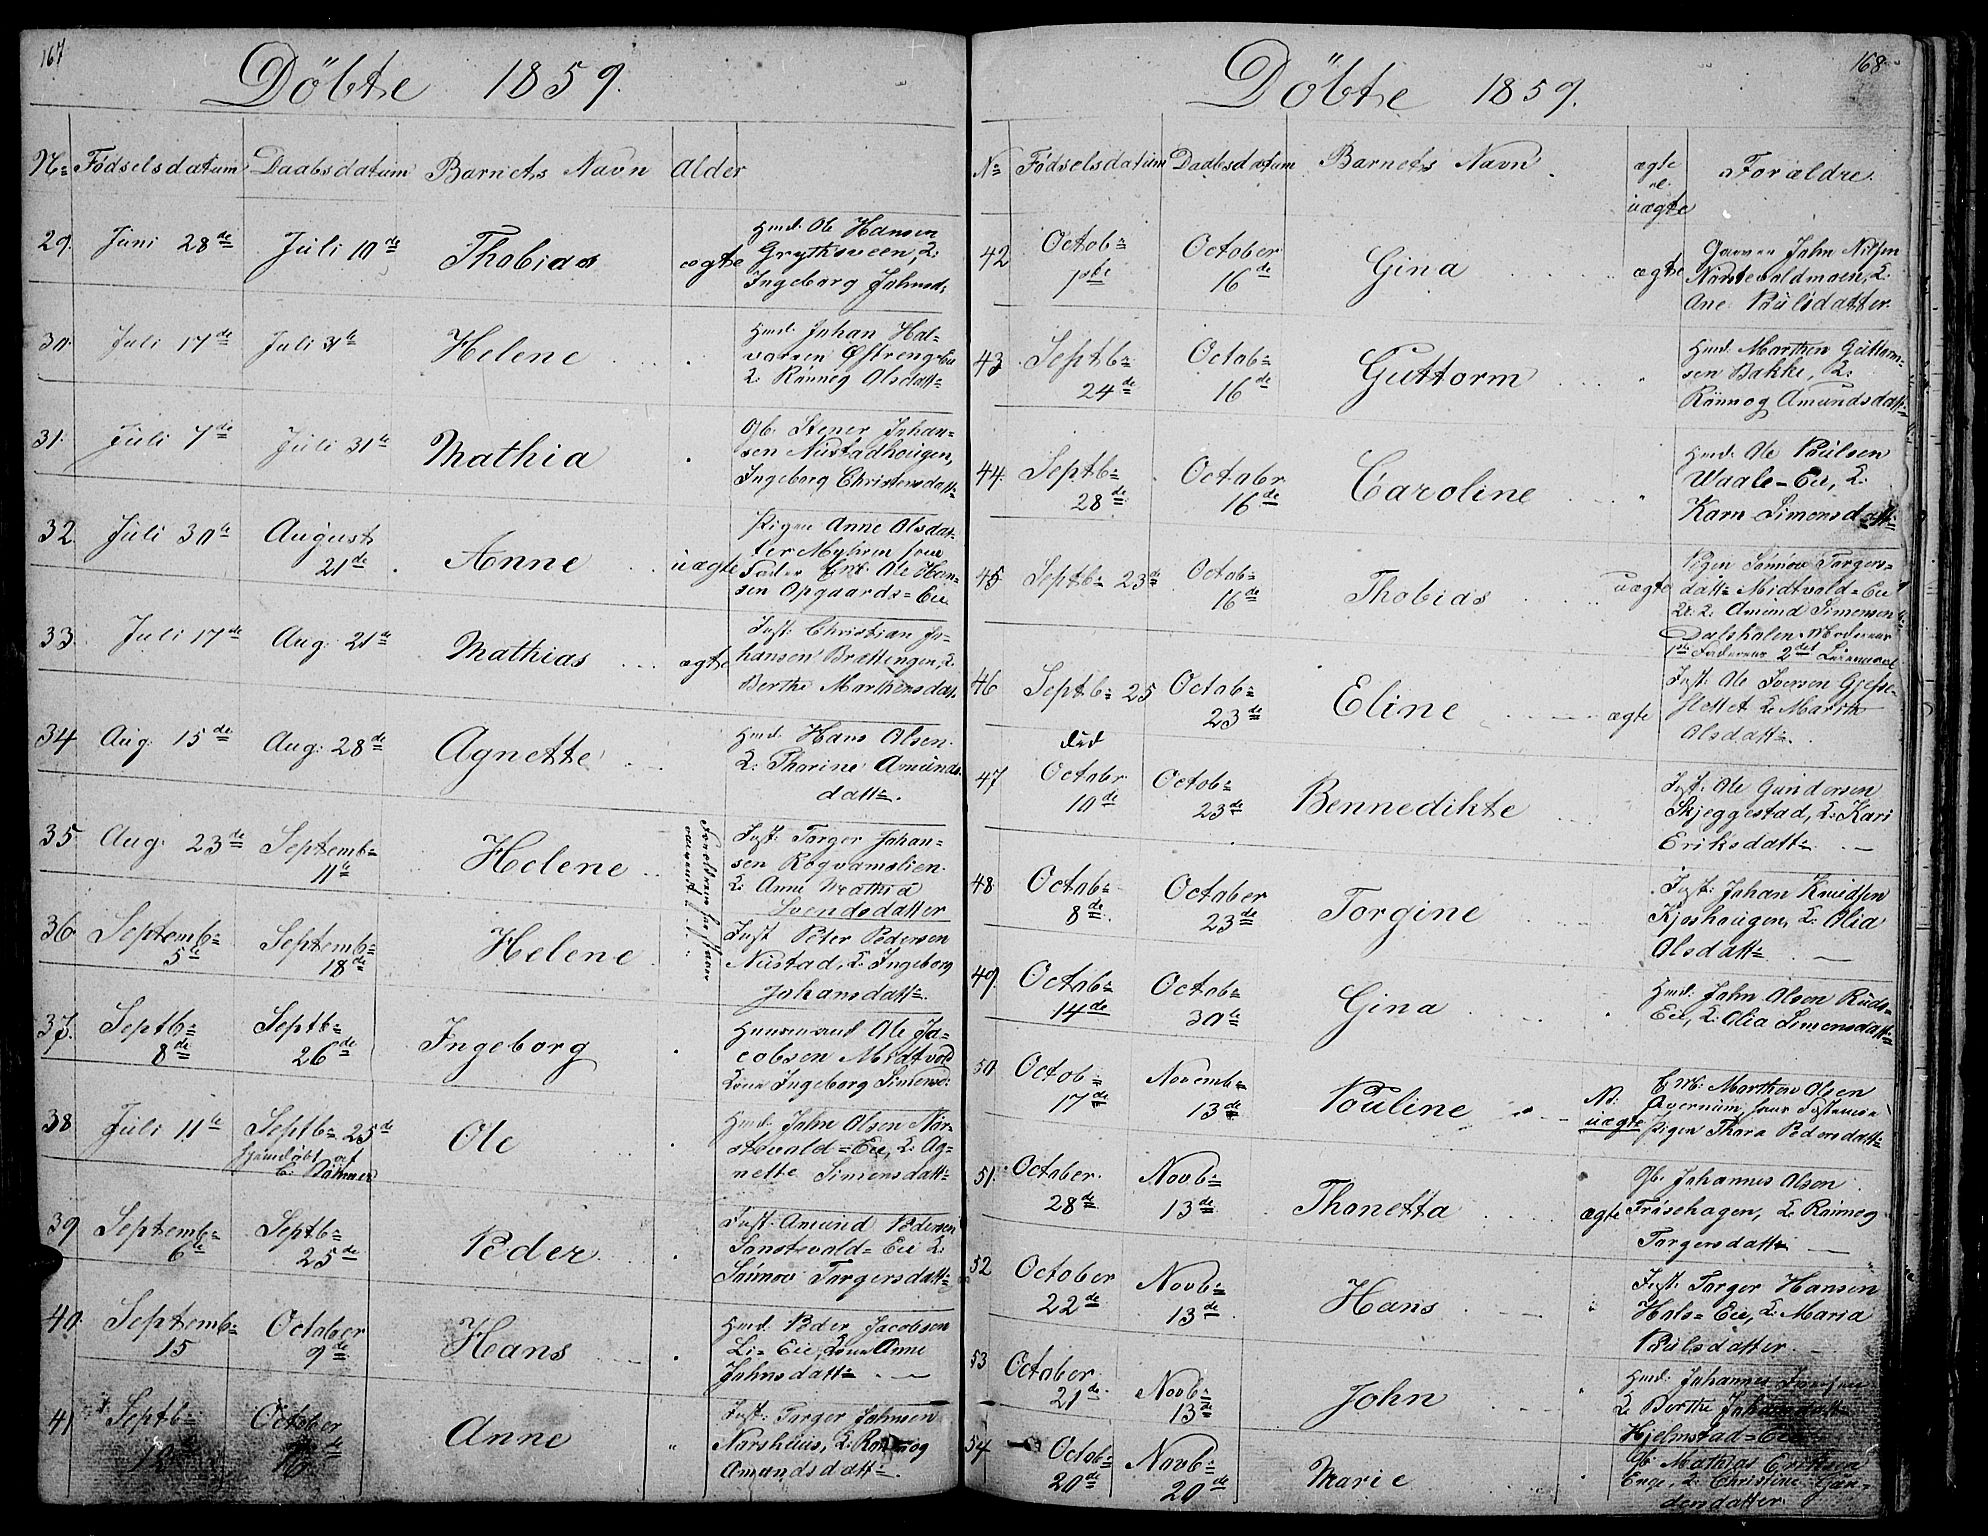 167
Döbte 1859.
No Fødselsdatum Daabsdatum Barnets Navn Alder
29. Juni 28de Juli 10de Thobias ægte Hmd. Ole Hansen
Grytksveen, &
Ingeborg Johnsd.
30. Juli 17de Juli 31te Helene Hmd. Johan Hal-
varsen Østreng-Eie
& Rönneg Olsdatt=
31. Juli 7de Juli 31te Mathia Gb. Stener Johan=
sen Nustadhougen,
Ingeborg Christensdatt=
32. Juli 30te August
21de Anne uægte Pigen Anne Olsdat=
ter Myhren
Fader Enk. Ole Han=
sen Opgaards=Eie
33. Juli 17de Aug. 21de Mathias ægte Inst: Christian Jo=
hansen Brættengen, &
Berthe Marthensdatt.
34 Aug. 15de Aug: 28de Agnette Hmd. Hans Olsen
& Thorine Amunds
datt=.
35 Aug. 23de Septemb=
11te Helene Inst: Torger Johan=
sen Rogvamslien
& Anne Mathia
Svendsdatter
36 Septemb=
5te Septemb=
18de Helene Inst Peter Pedersen
Nustad, & Ingeborg
Johansdatt=.
37. Septb=
8de Septb=
26de Ingeborg Huusmand Ole Ja=
cobsen Midtvold
Ingeborg Simensd.
38 Juli 11te Septb= 25de
hjemdöbt af
E. Ole Hmd. John Olsen Nör=
stevold=Eie, & Ag=
nette Simensdatt=
39 Septemb=
6te Septb=
25de Peder Inst: Amund Pedersen
Sönstevold=Eie &
Sönnov Torgersdatt=
40. Septemb=
15 October
9de Hans Hmd. Peder Jacobsen
Li=Eie, Anne
Johnsdatt=.
41 Septb=
October
Anne " Inst: Torger Johnsen
Norshuus, &
Amundsdatt=.
168
Döbte 1859.
No Fødselsdatum Daabsdatum Barnets Navn ægte
el.
uægte Forældre.
42 Octob=
1ste October
16de Gina ægte John Nilsen
Nörstevoldmoen, &
Ane Poulsdatter
43 Septb=
24de Octob=
16de Guttorm " Hmd. Marthen Guttorm=
sen Bakke, &
Rönnog Amundsdatt=
44. Septb=
28de October
16de Caroline " Hmd. Ole Poulsen
Waale=Eie, &
Karn Simensdatt=
45 Septb= 23de Octob=
16de Thobias uægte Pigen Sönnov Torgers=
datt= Midtvold=Eie
& Amund Simensen
Dalshølen Moderens
1ste Faderens 2det Leiermaal
46 Septb= 25 Octob=
23de Eline ægte Inst. Ole Iversen Grefse=
slettet & Marith
Olsdatt=.
död
47 October
10de Octob=
23de Bennedikte Inst. Ole Gundersen
Skjeggestad, & Kari
Eriksdatt=
48 Octob=
8de October
23de Torgine Inst: Johan Knudsen
Kjoshougen, & Olia
Olsdatt=
49. Octob=
14de Octob=
30te Gina Hmd. John Olsen Ruds=
Eie, & Olia Simensdatt=
50 Octob=
17de Novemb=
13de Pouline NB:
uægte Marthen Olsen
Avernum,
Pigen Thora Pedersdatt=
51. October
28de Novb=
13de Thonetta ægte Gb. Johannes Olsen
Fröisehagen, & Rönneg
Torgersdatt=
52 October
22de Novb=
13de Hans Inst. Torger Hansen
Hols=Eie, & Maria
Poulsdatter
53 October
21de Novb=
13de John " Hmd. Johannes
& Berthe Johannesdatt=
Hjelmstad=Eie
54 Octob=
20de Novb=
20de Marie Gb. Mathias Eriksen
Enge, & Christine Gun=
dersdatter